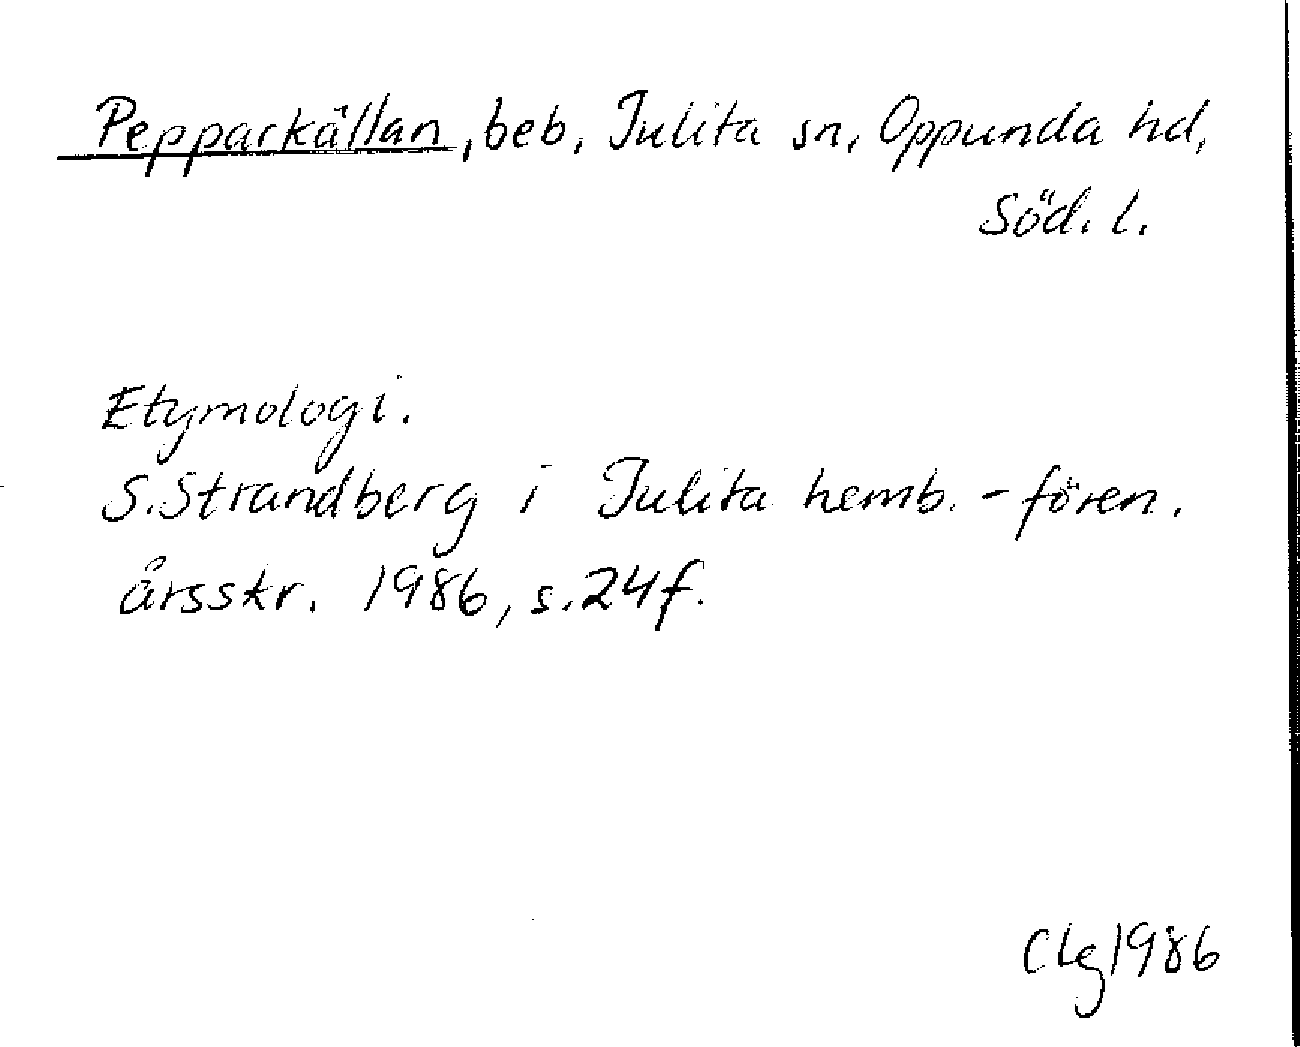 Pepparkällan, beb, Julita sn, Oppunda hd,
Söd. l.
Etymologi.
S. Strandberg i Julita hemb.-fören.
årsskr. 1986, s. 24 f.
CLg 1986